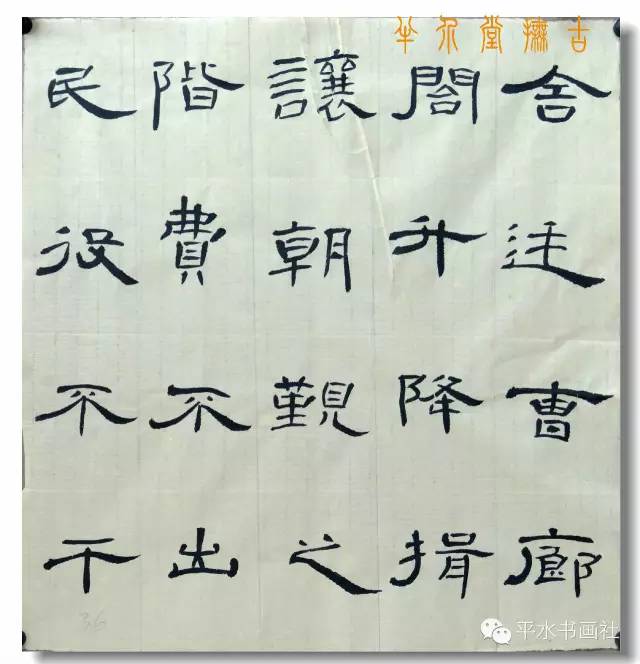 舍廷曹廊
閤升降揖
讓朝覲之
階費不出
民役不干
堂橅古
36
平水书画社